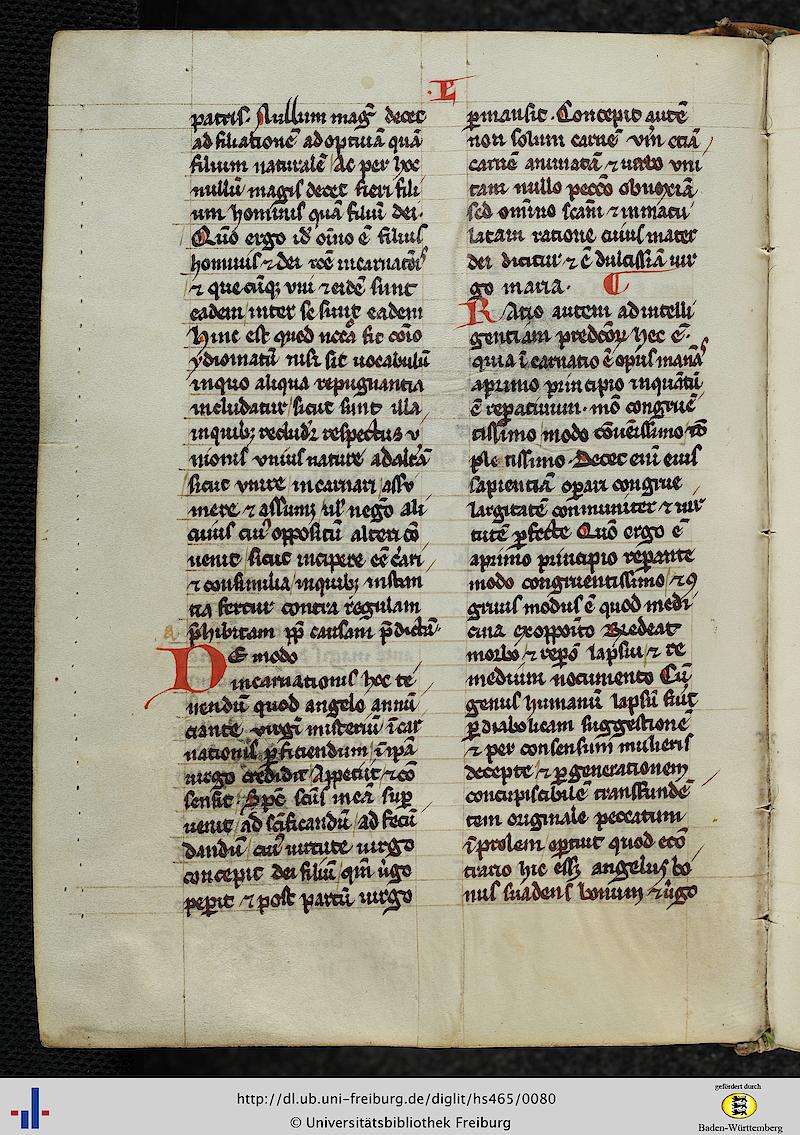 .L.
patris. Nullum mag̃ decet
ad filiationē adoptiuā quā
filium naturalē Ac per hoc
nullū magis decet fieri fili
um hominis quā filiū dei.
Quō ergo id̄ oīno ē filius
hominis ⁊ dei rōē incarnatōis
⁊ que cūq; vni ⁊ eidē sunt
eadem inter se sunt eadem
hinc est quod nccā fit cōīo
ydiomatū nisi sit uocabulū
inquo aliqua repugnantia
includatur sicut sunt illa
inquib; respectus v
nionis vnius nature ad altā
sicut vnire incarnari assv
mere ⁊ assumi ul' negō ali
cuius cui' oppositū alteri cō
uenit sicut incipere eē c̄ari
⁊ consimilia inquib; instan
tia fertur contra regulam
p̄hibitam pp̄ causam p̄dictā.
DE modo
incarnationis hoc te
nendū quod angelo annū
ciante virgī misteriū īcar
nationis p̄ficiendum īip̄a
uirgo credidit Appetiit ⁊ cō
sensit. Sp̄c sc̄us ineā sup
uenit ad sc̄ificandū ad fecū
dandū cui' uirtute uirgo
concepit dei filiū qm̄ ūgo
peperit ⁊ post partū uirgo
p̄mansit. Concepit autē
non solum carnē vm̄ etiā
carnē animatā ⁊ uerbo vni
tam nullo pecc̄o obnoxiā
sed omīno sc̄am̄ ⁊ inmacu
latam ratione cuius mater
dei dicitur ⁊ ē dulcissīa uir
go maria.
RAtio autem ad intelli
gentiam predcōꝝ hec ē.
quia īcarnatio ē opus
aprimo principio inquātū
ē repatiuum. mō congruē
tissimo modo cōueīssimo cō
ple tissimo Decet eni eius
sapientiā opari congrue
largitatē communiter ⁊ uir
tutē p̄fecte Quō ergo ē
aprimo principio repante
modo congruentissimo ⁊ ꝯ
gruus modus ē quod medi
cina exopp̄oīto
morbo ⁊ repō lapsui ⁊ re
medium nocumento Cū
genus humanū lapsū fuit
p diabolicam suggestionē
⁊ per consensum mulieris
decepte ⁊ p generationem
concupiscibilē transfundē
tem originale peccatum
īprolem oportuit quod ecō
trario hic ess; angelus bo
nus suadens bonum ⁊ ūgo
http://dl.ub.uni-freiburg.de/diglit/hs465/0080
© Universitätsbibliothek Freiburg
gefördert durch
Baden-Württemberg